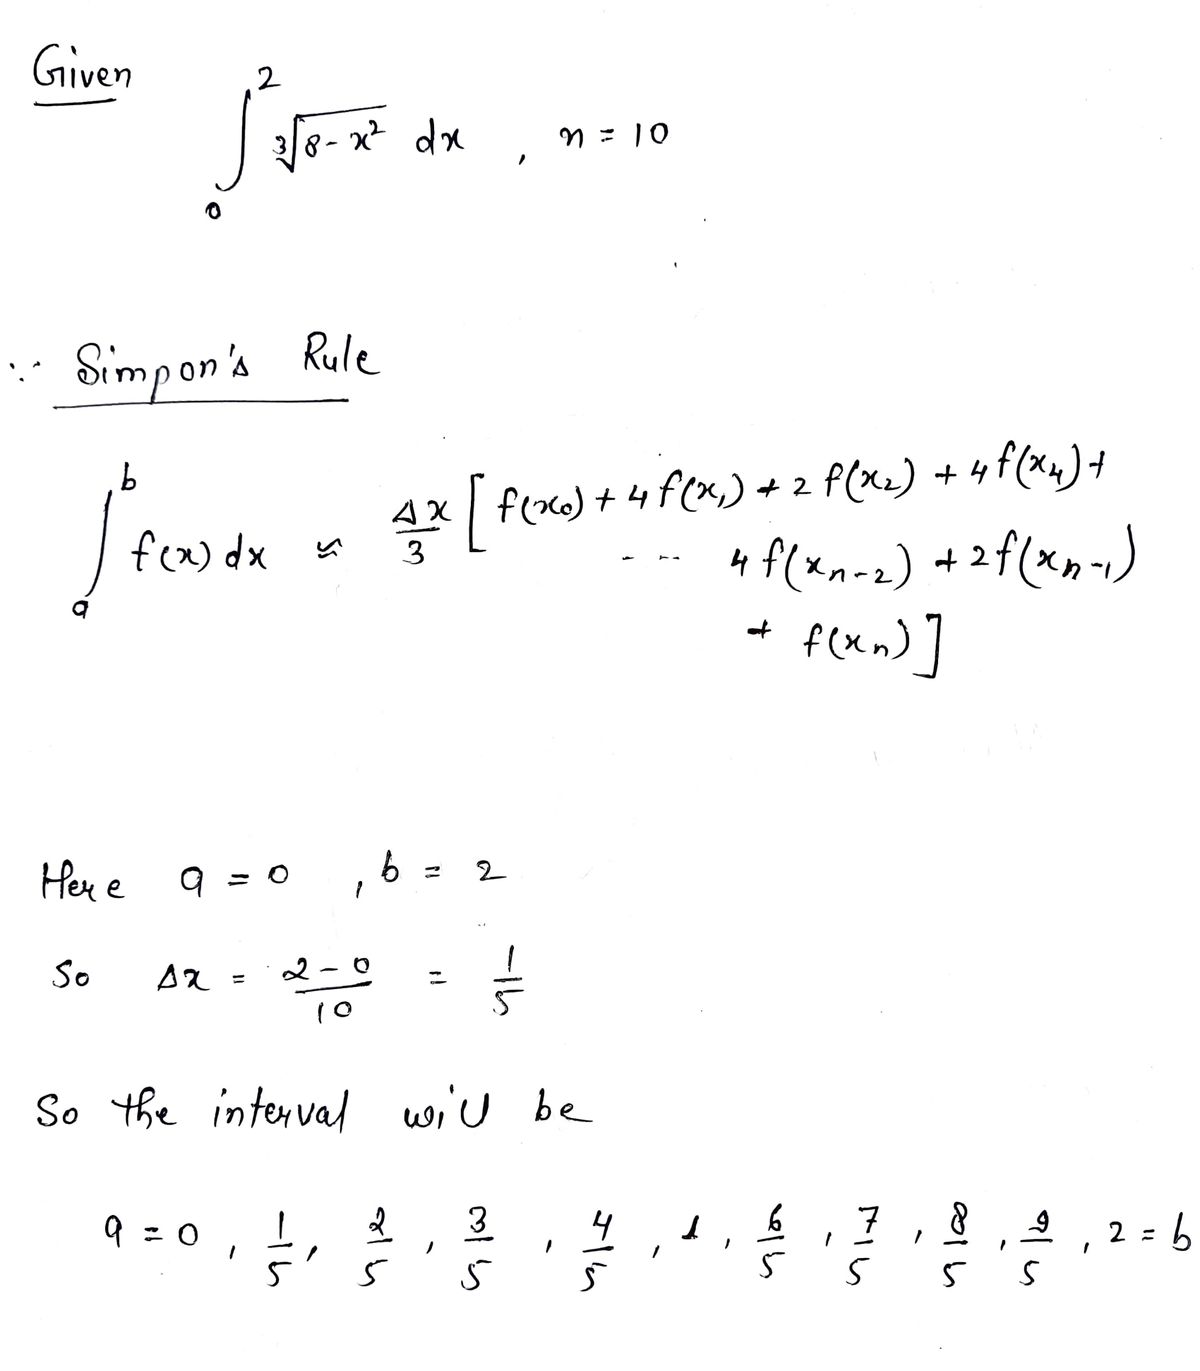 Given
∫₀² ∛(8 - x²) dx , n = 10
∵ Simpon's Rule
∫ₐᵇ f(x) dx ≈ Δx/3 [ f(x₀) + 4f(x₁) + 2f(x₂) + 4f(x₄) +
-- -- 4f(xₙ₋₂) + 2f(xₙ₋₁)
+ f(xₙ) ]
Here a = 0 , b = 2
So Δx = (2 - 0)/10 = 1/5
So the interval will be
a = 0 , 1/5 , 2/5 , 3/5 , 4/5 , 1 , 6/5 , 7/5 , 8/5 , 9/5 , 2 = b